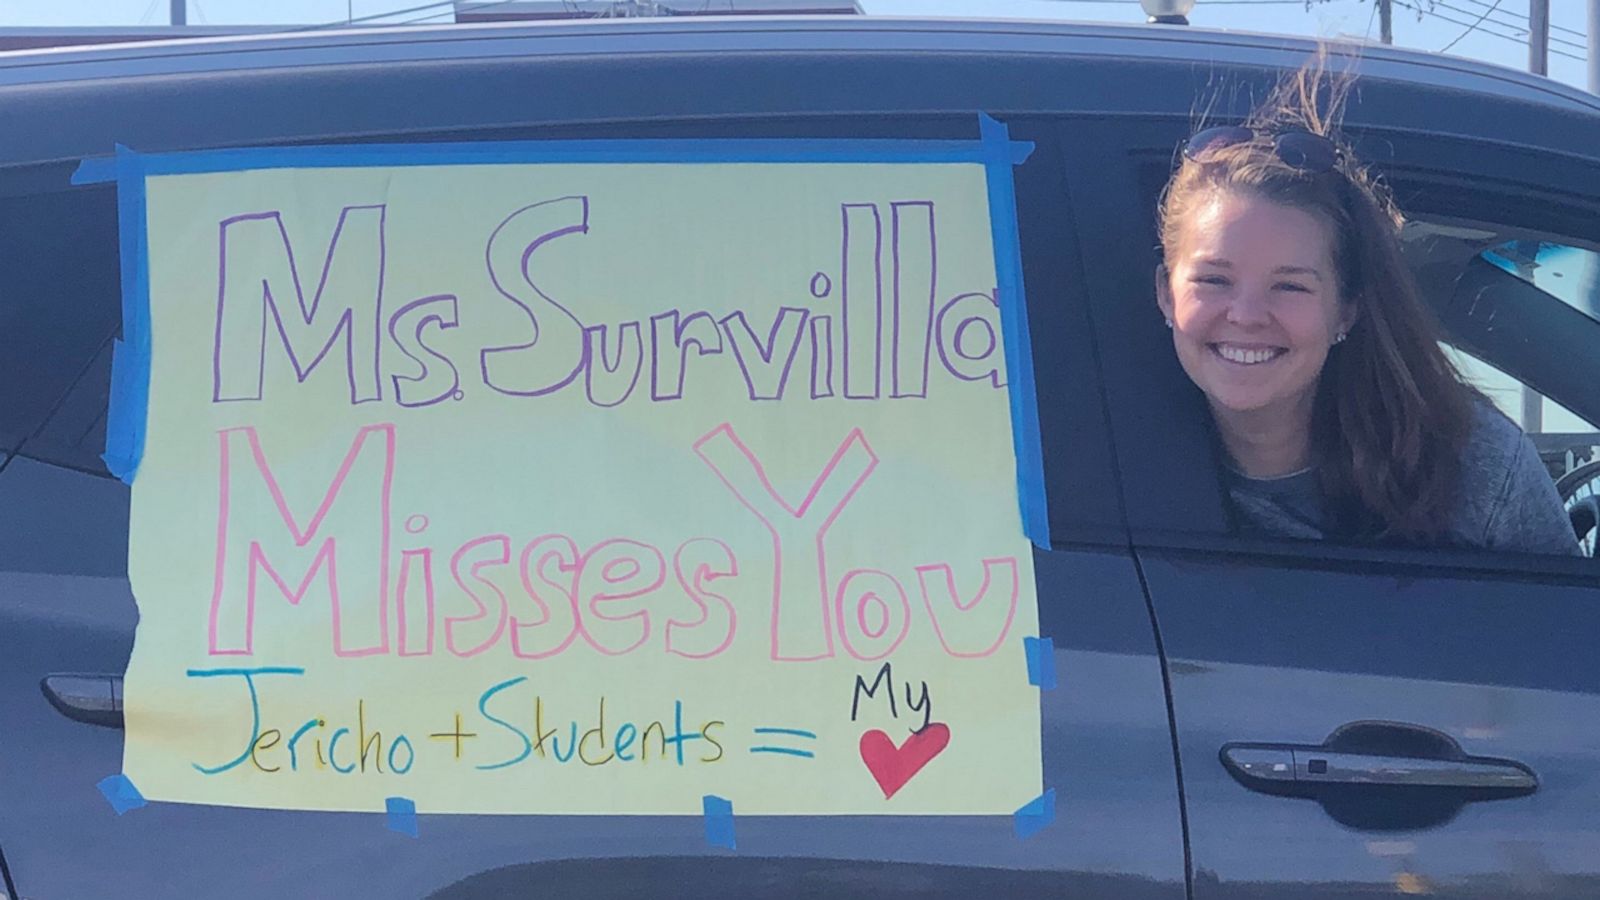 Ms. Survilla
Misses You
Jericho + Students = My ♥